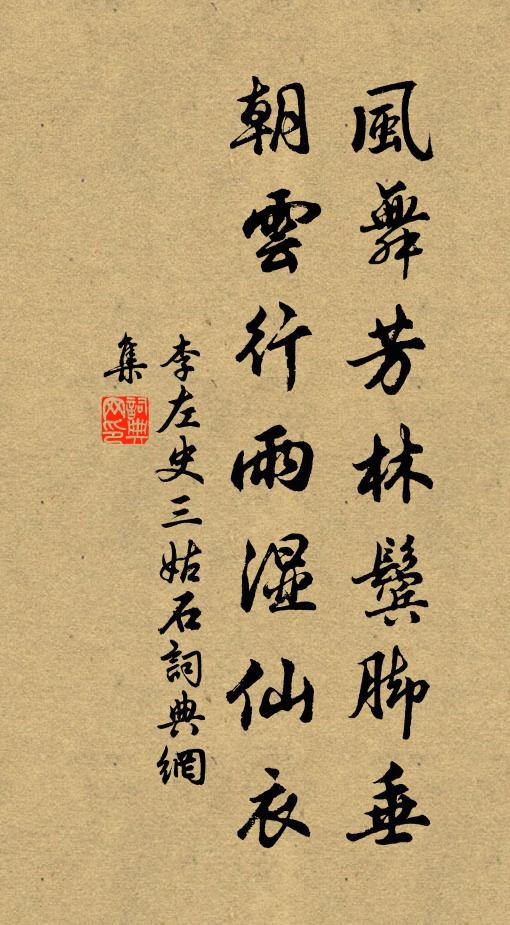 風舞芳林鬓脚垂
朝雲行雨湿仙衣
李左史三姑石詞典網
集
詞典
网印